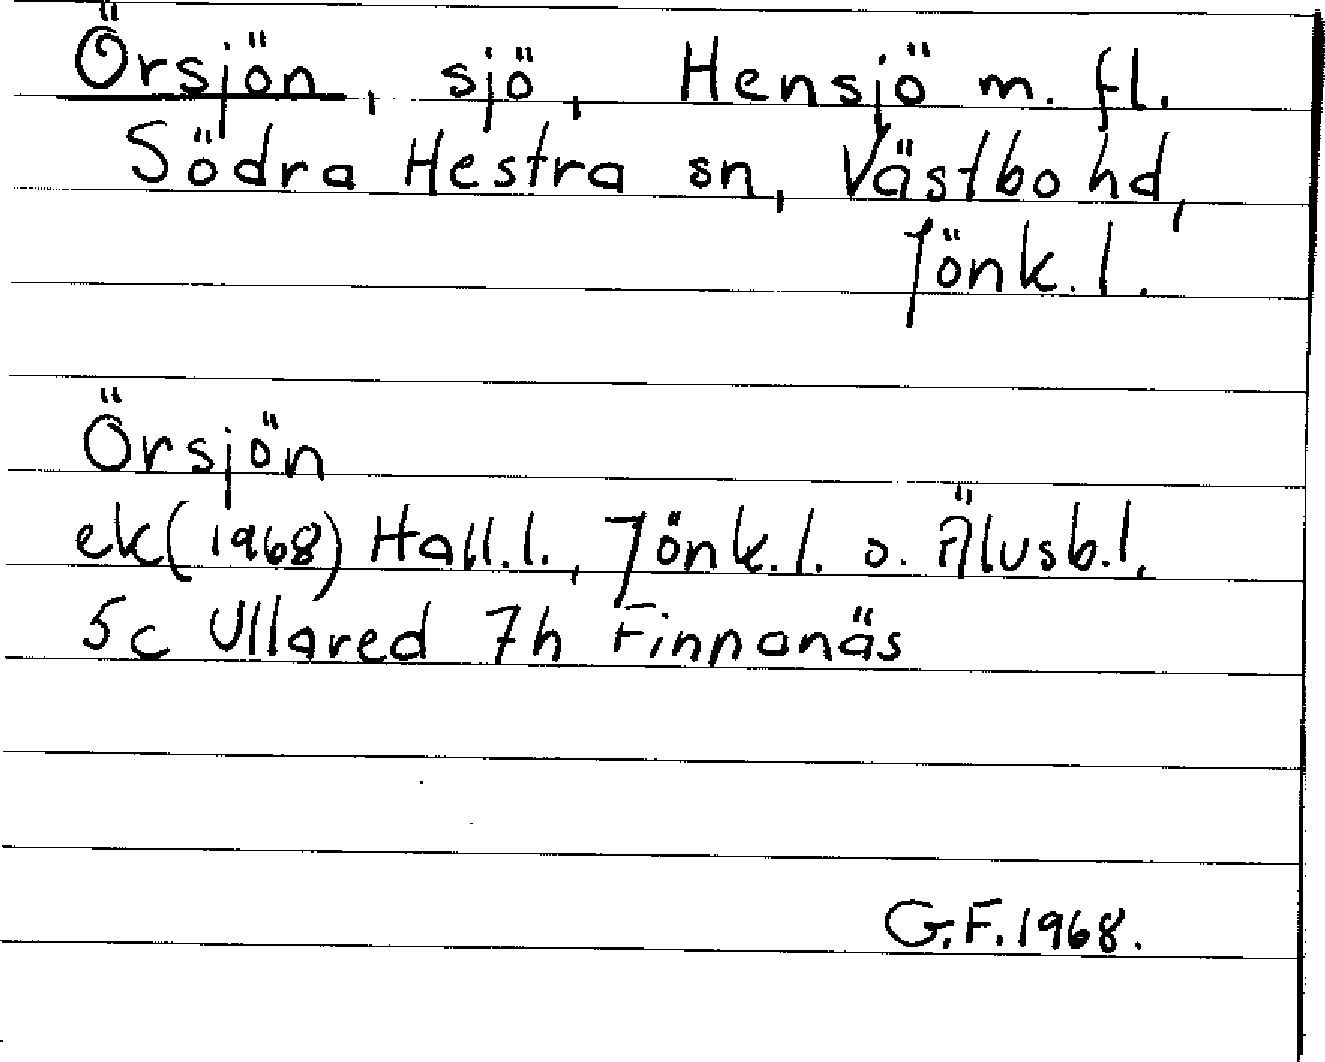 Örsjön, sjö, Hensjö m. fl.
Södra Hestra sn, Västbo hd,
Jönk. l.
Örsjön
ek (1968) Hall. l., Jönk. l. o. Älvsb. l.
5c Ullared 7h Finnanäs
G.F. 1968.